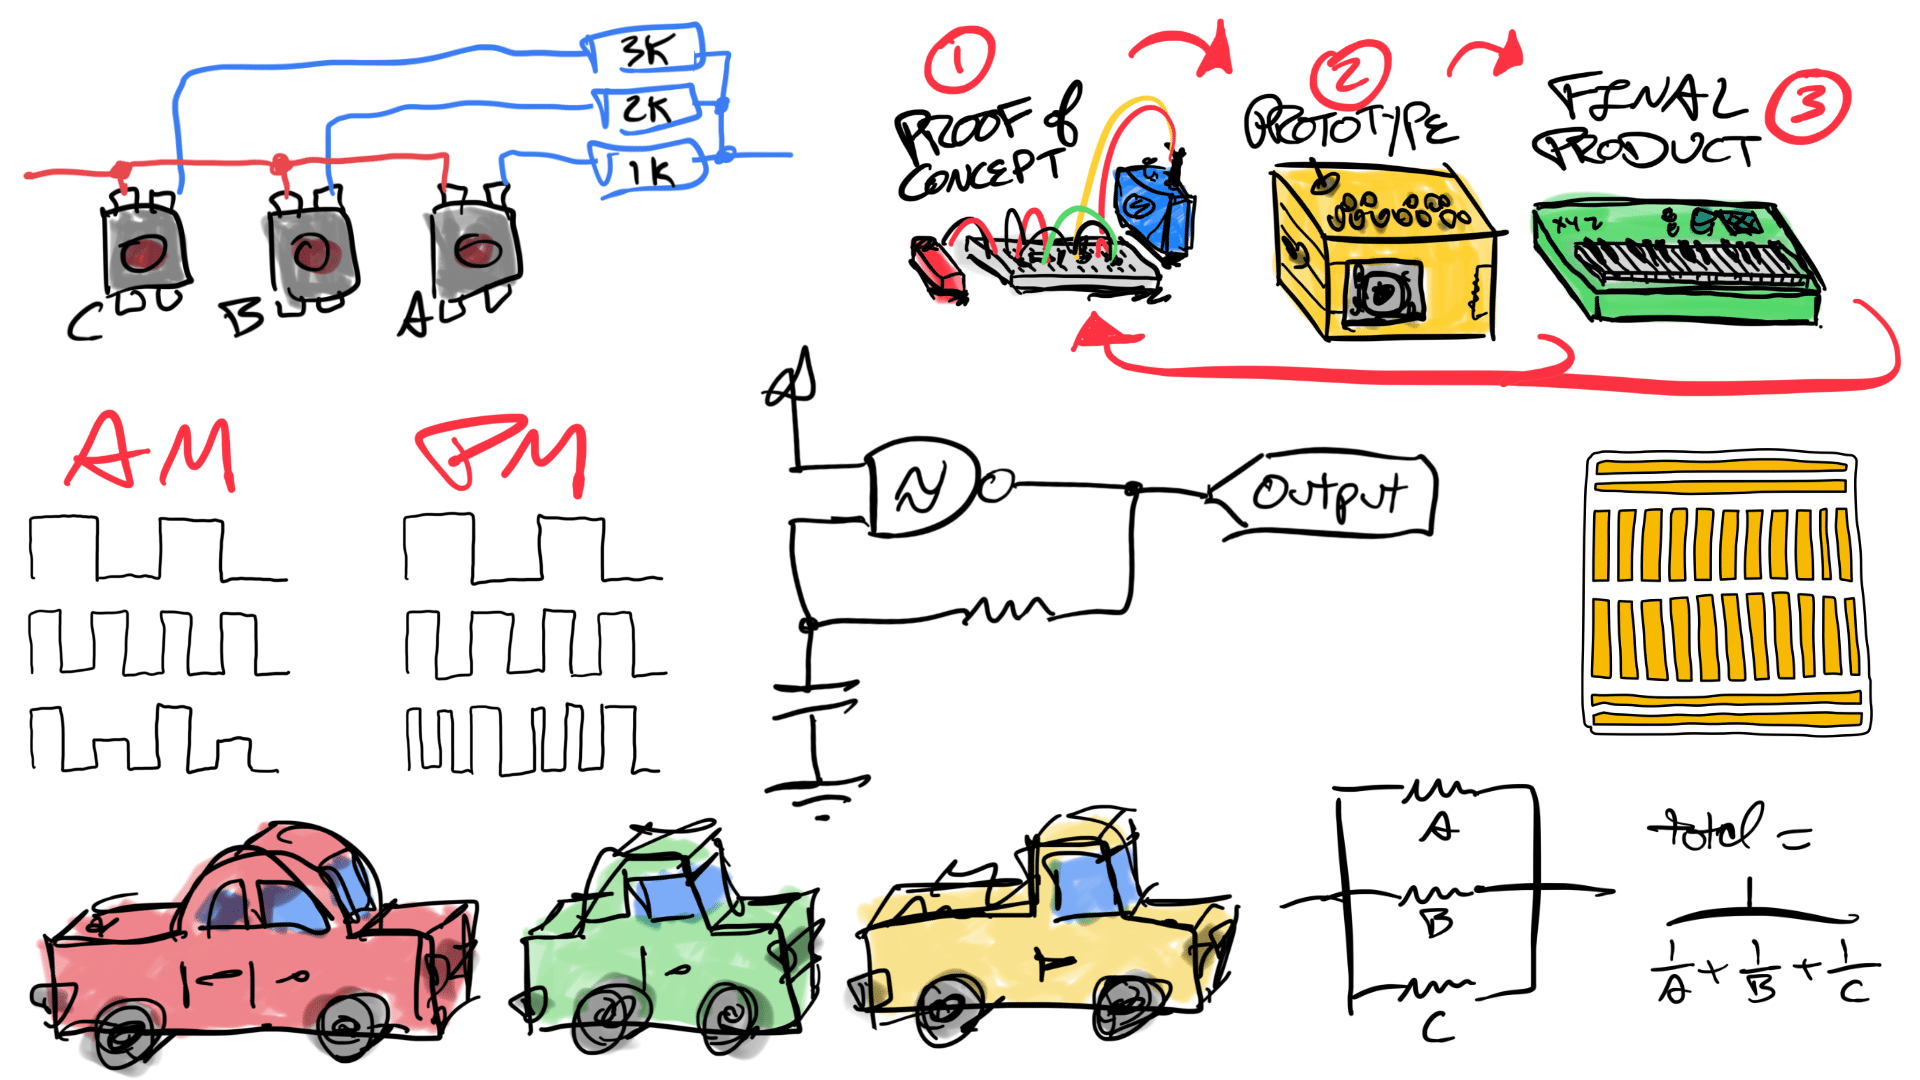 3K
2K
1K
C
B
A
1
PROOF of
CONCEPT
2
PROTOTYPE
3
FINAL
PRODUCT
XYZ
AM
FM
N
Output
A
B
C
total =
1
1/A + 1/B + 1/C